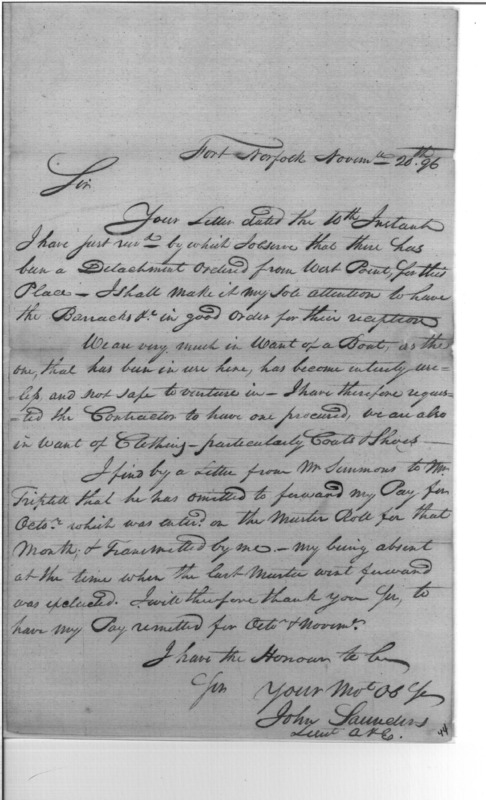 Fort Norfolk Novemr. 20th. 96
Sir
Your Letter dated the 10th Instant
I have just recd. by which I observe that there has
been a Detachment Ordered from West Point, for this
Place – I shall make it my Sole attention to have
the Barracks &c. in good Order for their reception
We are very much in Want of a Boat, as the
one, that has been in use here, has become intirely use=
=less and not safe to venture in – I have therefore reques=
=ted the Contractor to have one procured, we are also
in Want of Clothing – particularly Coats & Shoes –
I find by a Letter from Mr Simmons to Mr
Triplett that he has omitted to forward my Pay for
Octor. which was enterd. on the Muster Roll for that
Month, & Transmitted by me – my being absent
at the time when the last Muster went forward
was excluded. I will therefore thank you Sir, to
have my Pay remitted for Octor & Novemr.
I have the Honour to be
Sir
Your Mot. Ob Se
John Saunders
Lieut A & E.
44